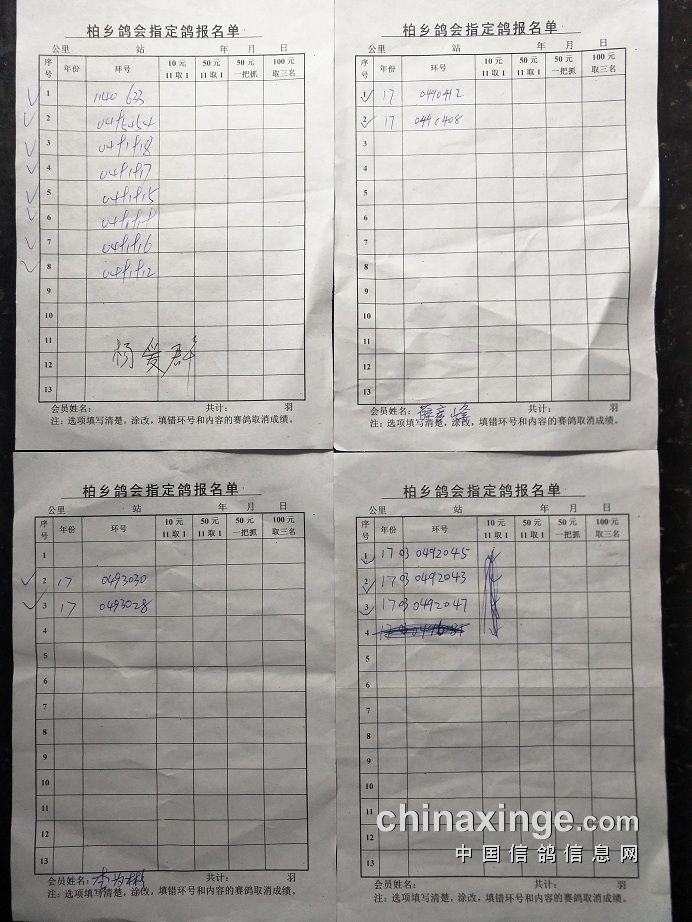 柏乡鸽会指定鸽报名单
公里 站 年 月 日
序号 年份 环号 10元 11取1 50元 11取1 50元 一把抓 100元 取三名
1 1140 633
2
3
4
5
6
7
8
9
10
11
12
13
杨爱群
会员姓名: 共计: 羽
注:选项填写清楚,涂改,填错环号和内容的赛鸽取消成绩。
柏乡鸽会指定鸽报名单
公里 站 年 月 日
序号 年份 环号 10元 11取1 50元 11取1 50元 一把抓 100元 取三名
1 17 0490412
2 17 0490408
3
4
5
6
7
8
9
10
11
12
13
会员姓名: 共计: 羽
注:选项填写清楚,涂改,填错环号和内容的赛鸽取消成绩。
柏乡鸽会指定鸽报名单
公里 站 年 月 日
序号 年份 环号 10元 11取1 50元 11取1 50元 一把抓 100元 取三名
1
2 17 0493030
3 17 0493028
4
5
6
7
8
9
10
11
12
13
会员姓名: 李为彬 共计: 羽
注:选项填写清楚,涂改,填错环号和内容的赛鸽取消成绩。
柏乡鸽会指定鸽报名单
公里 站 年 月 日
序号 年份 环号 10元 11取1 50元 11取1 50元 一把抓 100元 取三名
1 1703 0492045
2 1703 0492043
3 1703 0492047
4
5
6
7
8
9
10
11
12
13
会员姓名: 共计: 羽
注:选项填写清楚,涂改,填错环号和内容的赛鸽取消成绩。
chinaxinge.com
中国信鸽信息网